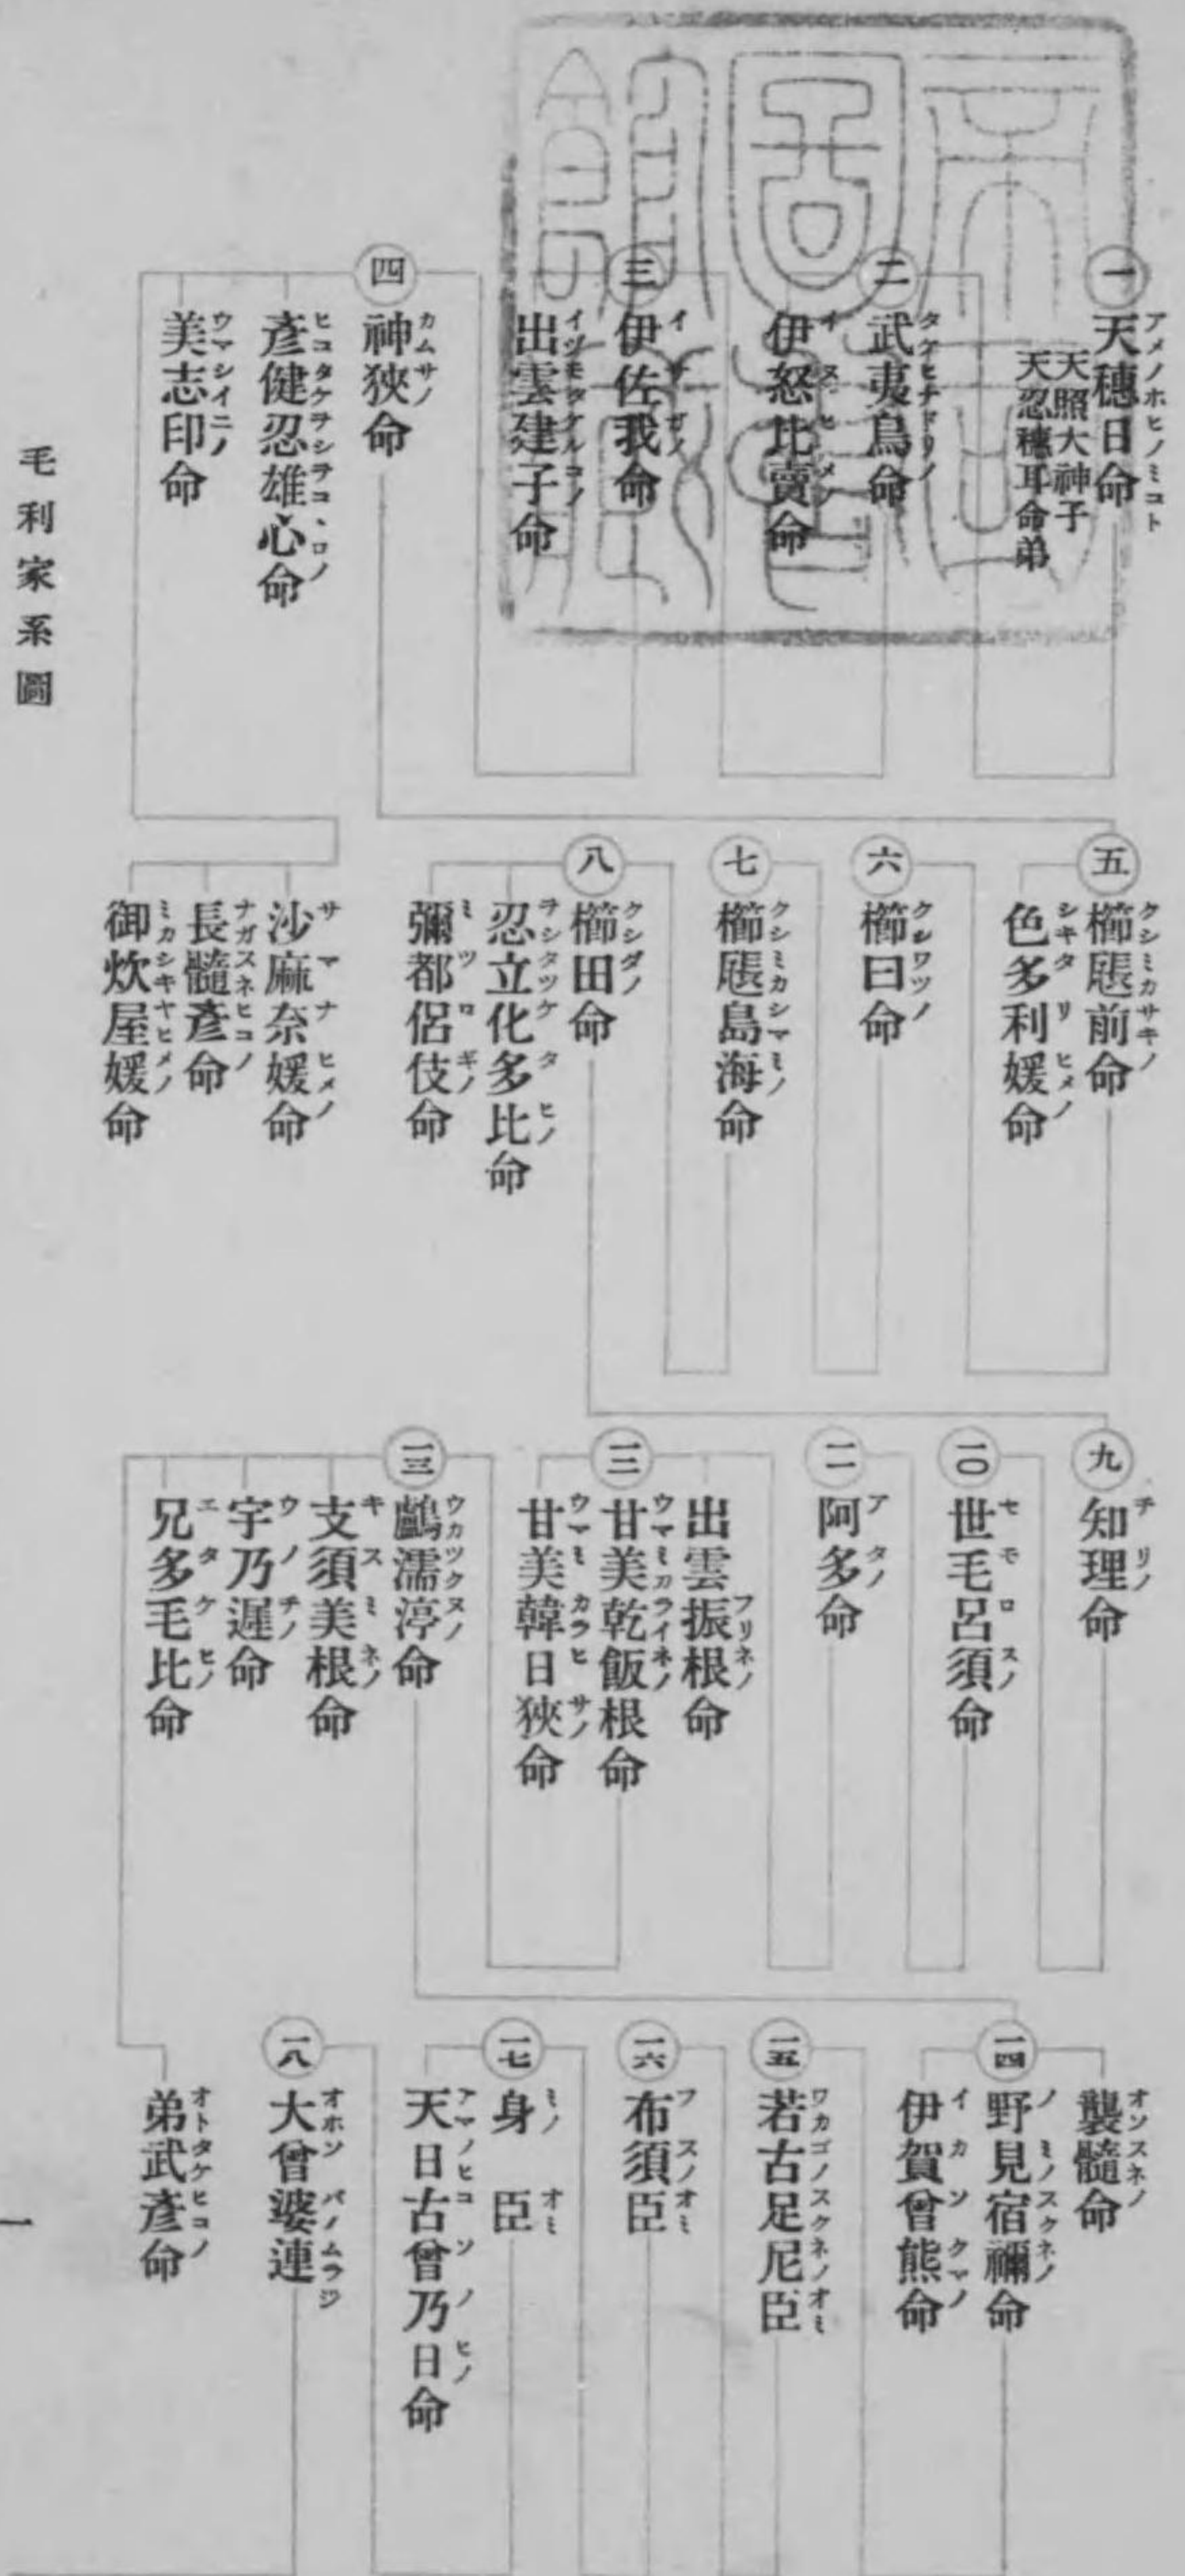 一
天穗日命
アメノホヒノミコト
天照大神子
天忍穗耳命弟
二
武夷鳥命
タケヒナドリノ
伊怒比賣命
イヌヒメノ
三
伊佐我命
イサガノ
出雲建子命
イヅモタケルコノ
四
神狹命
カムサノ
彥健忍雄心命
ヒコタケヲシヲコヽロノ
美志印命
ウマシイニノ
五
櫛𤭖前命
クシミカサキノ
色多利媛命
シキタリヒメノ
六
櫛曰命
クシワツノ
七
櫛𤭖島海命
クシミカシマミノ
八
櫛田命
クシダノ
忍立化多比命
ヲシタツケタヒノ
彌都侶伎命
ミツロギノ
沙麻奈媛命
サマナヒメノ
長髓彥命
ナガスネヒコノ
御炊屋媛命
ミカシキヤヒメノ
九
知理命
チリノ
一〇
世毛呂須命
セモロスノ
一一
阿多命
アタノ
出雲振根命
フリネノ
一二
甘美乾飯根命
ウマミカライネノ
甘美韓日狹命
ウマミカラヒサノ
一三
鸕濡渟命
ウカツクヌノ
支須美根命
キスミネノ
宇乃遲命
ウノチノ
兄多毛比命
エタケヒノ
襲髓命
オソスネノ
一四
野見宿禰命
ノミノスクネノ
伊賀曾熊命
イカソクマノ
一五
若古足尼臣
ワカゴノスクネノオミ
一六
布須臣
フスノオミ
一七
身臣
ミノオミ
天日古曾乃日命
アマノヒコソノヒノ
一八
大曾婆連
オホソバノムラジ
弟武彥命
オトタケヒコノ
毛利家系圖
一